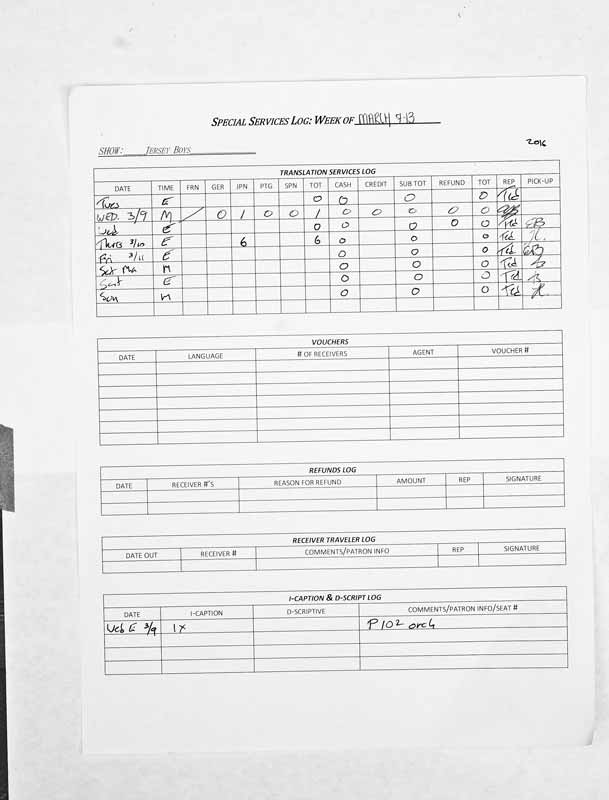 SPECIAL SERVICES LOG: WEEK OF MARCH 7-13
2016
SHOW: JERSEY BOYS
TRANSLATION SERVICES LOG
DATE TIME FRN GER JPN PTG SPN TOT CASH CREDIT SUB TOT REFUND TOT REP PICK-UP
Tues E 0 0 0 0 Ted
WED. 3/9 M 0 1 0 0 1 0 0 0 0 0
Wed E 0 0 0 0 0 Ted EB
Thurs 3/10 E 6 6 0 0 0 Ted
Fri 3/11 E 0 0 0 Ted EB
Sat Ma M 0 0 0 Ted
Sat E 0 0 0 Ted
Sun M 0 0 0 Ted
VOUCHERS
DATE LANGUAGE # OF RECEIVERS AGENT VOUCHER #
REFUNDS LOG
DATE RECEIVER #'S REASON FOR REFUND AMOUNT REP SIGNATURE
RECEIVER TRAVELER LOG
DATE OUT RECEIVER # COMMENTS/PATRON INFO REP SIGNATURE
I-CAPTION & D-SCRIPT LOG
DATE I-CAPTION D-SCRIPTIVE COMMENTS/PATRON INFO/SEAT #
Wed E 3/9 1X P102 orch